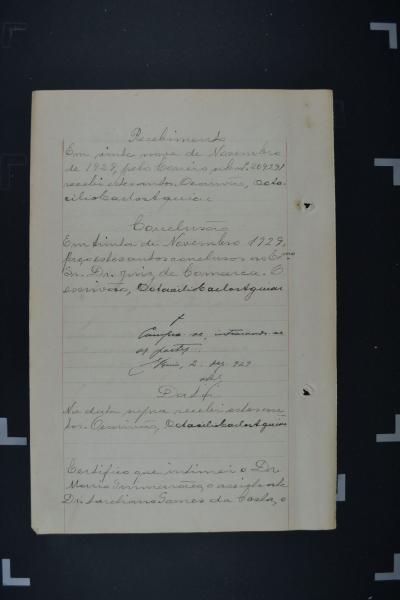 Recebimento
Em vinte nove de Novembro
de 1929, pelo Correio, sob n.º 209291
recebi estes autos. O escrivão, Octa-
cilio Carlos Aguiar
Conclusão
Em trinta de Novembro 1929,
faço estes autos conclusos ao Ex.mo
Sr. Dr. Juiz de Comarca. O
escrivão, Octacilio Carlos Aguiar
Cumpra-se, intimando-se
as partes.
2. dez. 929
Data
Na data supra recebi estes au-
tos. O escrivão, Octacilio Carlos Aguiar
Certifico que intimei o Dr.
Mario
Dr. Gomes da Costa, o